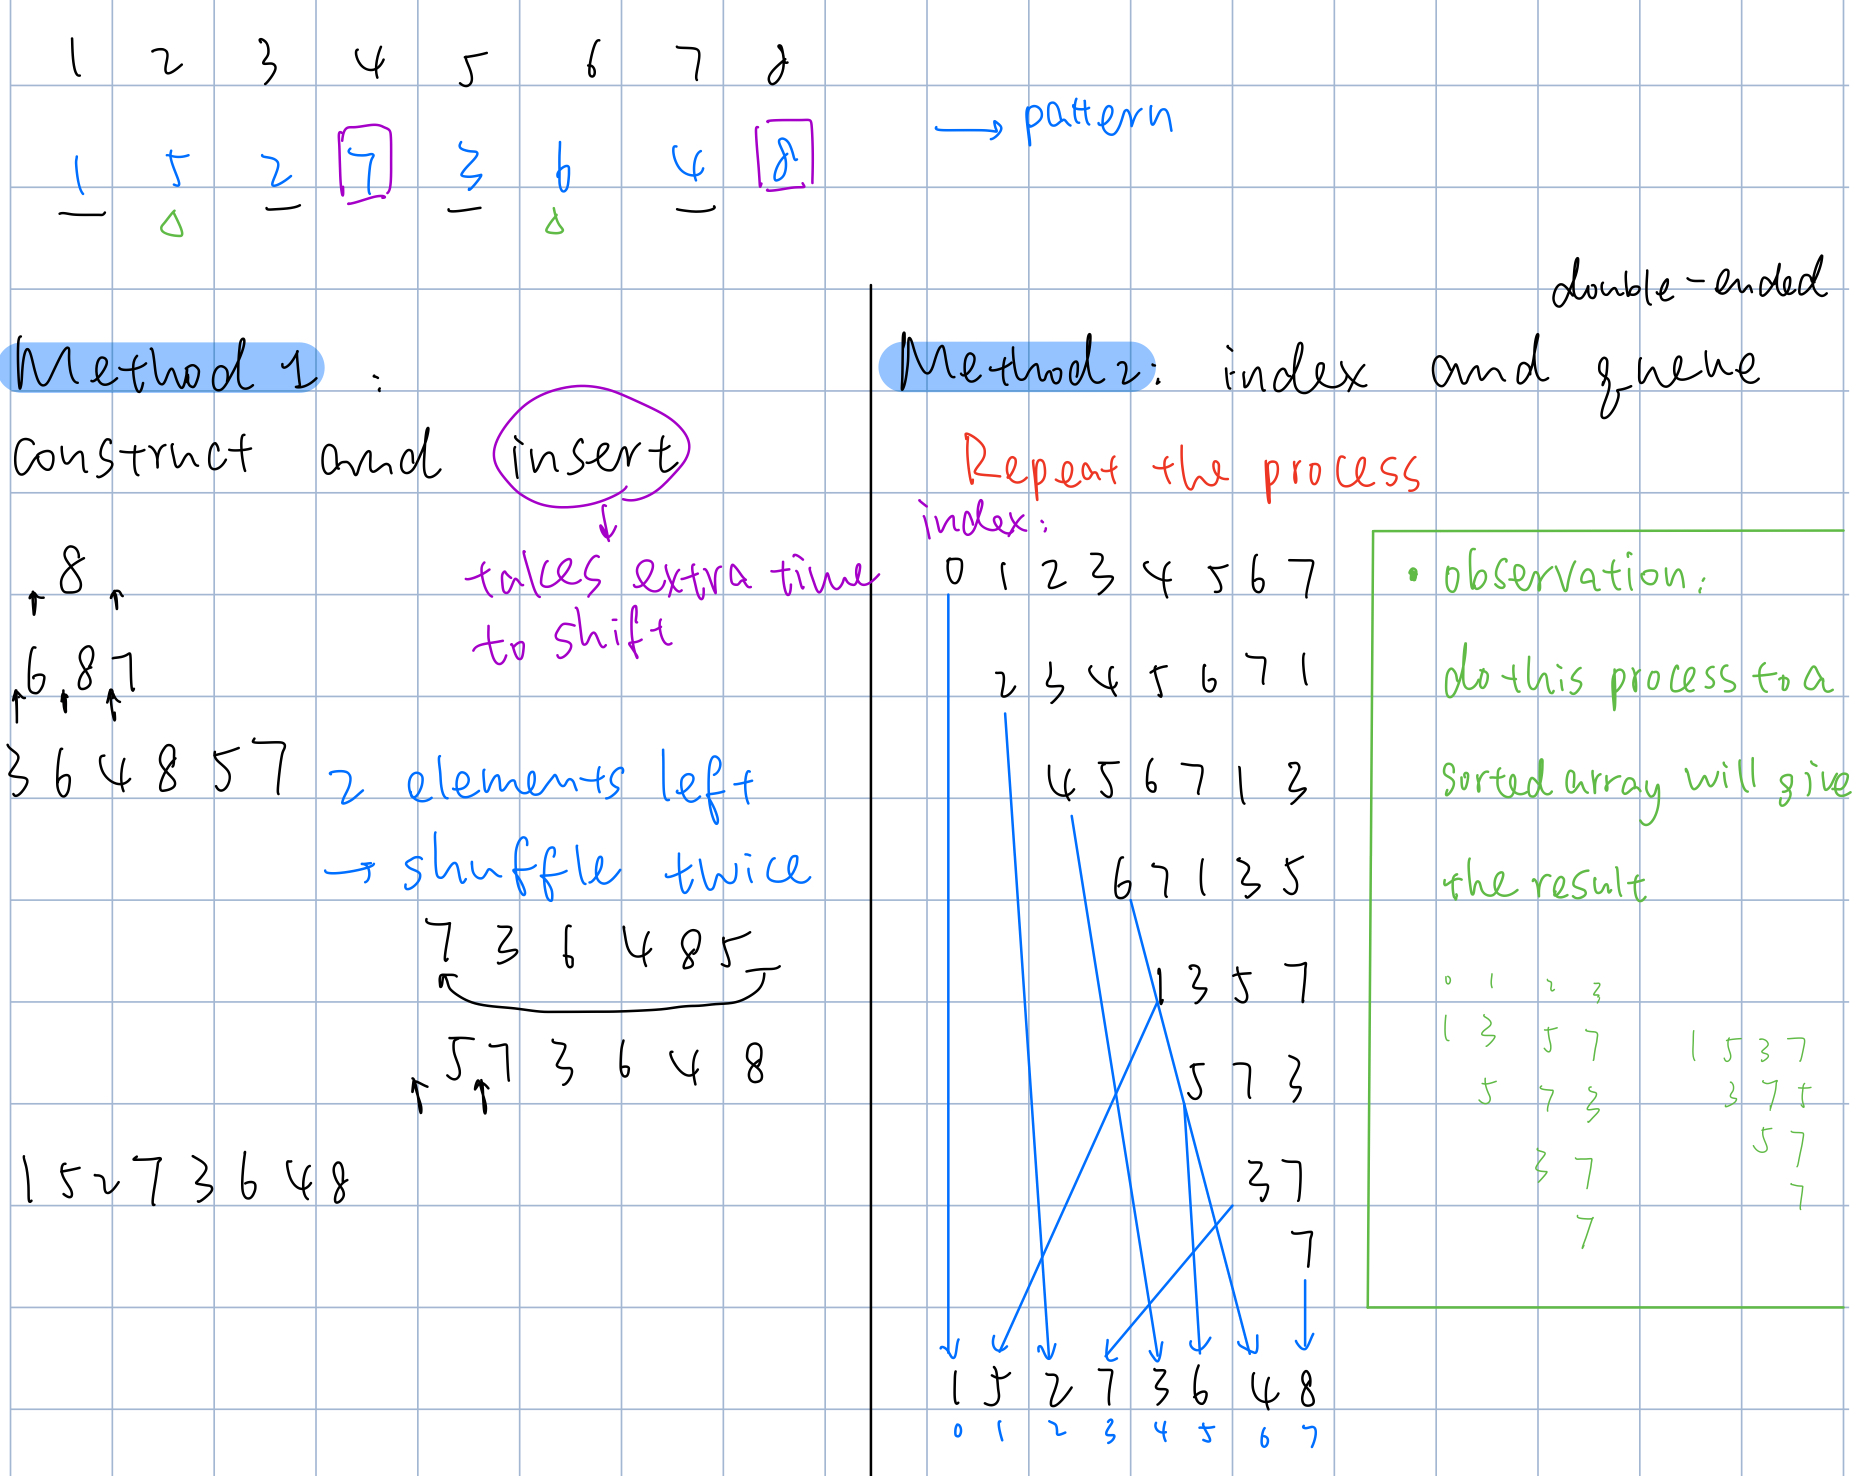 1 2 3 4 5 6 7 8
1 5 2 7 3 6 4 8
→ pattern
Method 1 :
construct and insert
takes extra time
to shift
8
6 8 7
3 6 4 8 5 7
2 elements left
→ shuffle twice
7 3 6 4 8 5
5 7 3 6 4 8
1 5 2 7 3 6 4 8
double-ended
Method 2: index and queue
Repeat the process
index:
0 1 2 3 4 5 6 7
2 3 4 5 6 7 1
4 5 6 7 1 3
6 7 1 3 5
1 3 5 7
5 7 3
3 7
7
1 5 2 7 3 6 4 8
0 1 2 3 4 5 6 7
• observation:
do this process to a
sorted array will give
the result
0 1 2 3
1 3 5 7
5 7 3
3 7
7
1 5 3 7
3 7 5
5 7
7